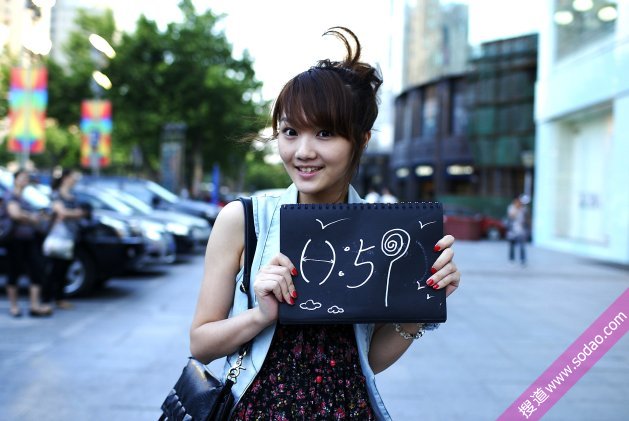 :59
搜道www.sodao.com